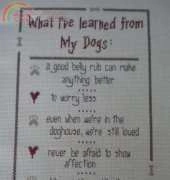 What I've learned from
My Dogs:
a good belly rub can make
anything better
to worry less
even when we're in the
doghouse, we're still loved
never be afraid to show
affection